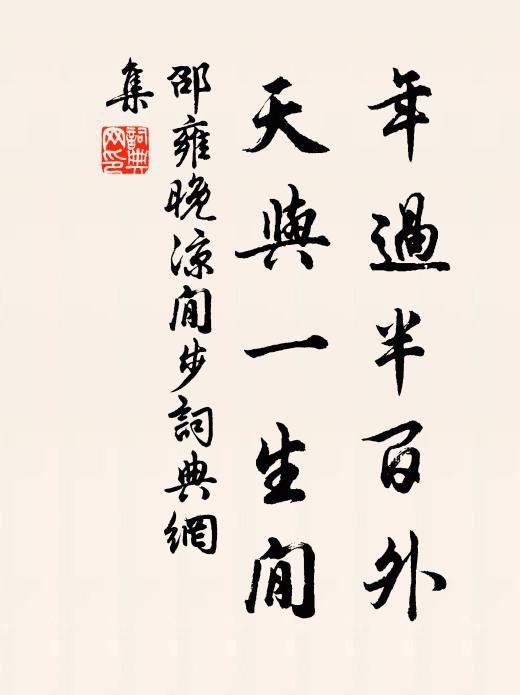 年過半百外
天與一生閒
邵雍晚涼閒步詞典網
集
詞典
网印